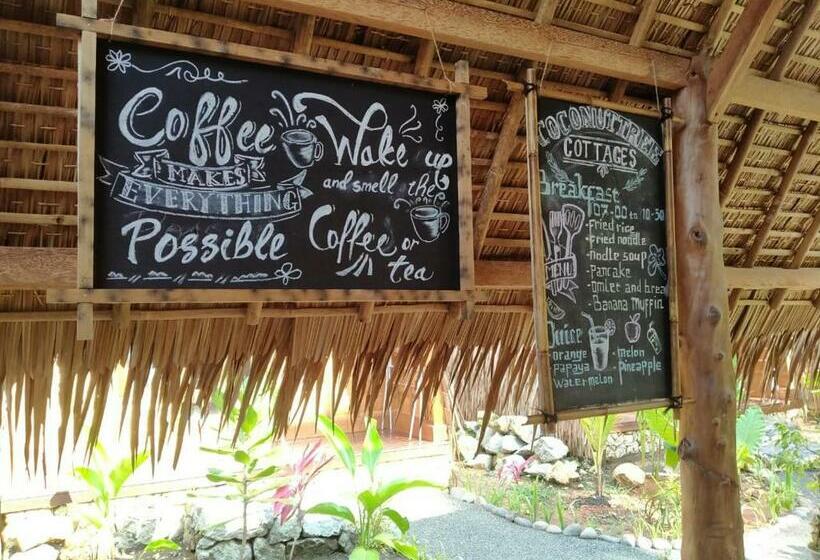 Coffee
MAKES
EVERYTHING
Possible
Wake up
and smell the
Coffee or
tea
COCONUTTREE
COTTAGES
Breakfast
107-00 to 10-30
MENU
-fried rice
-fried noodle
-nodle soup
-pancake
-omlet and bread
-Banana muffin
Juice
-orange -melon
-papaya -pineapple
-watermelon